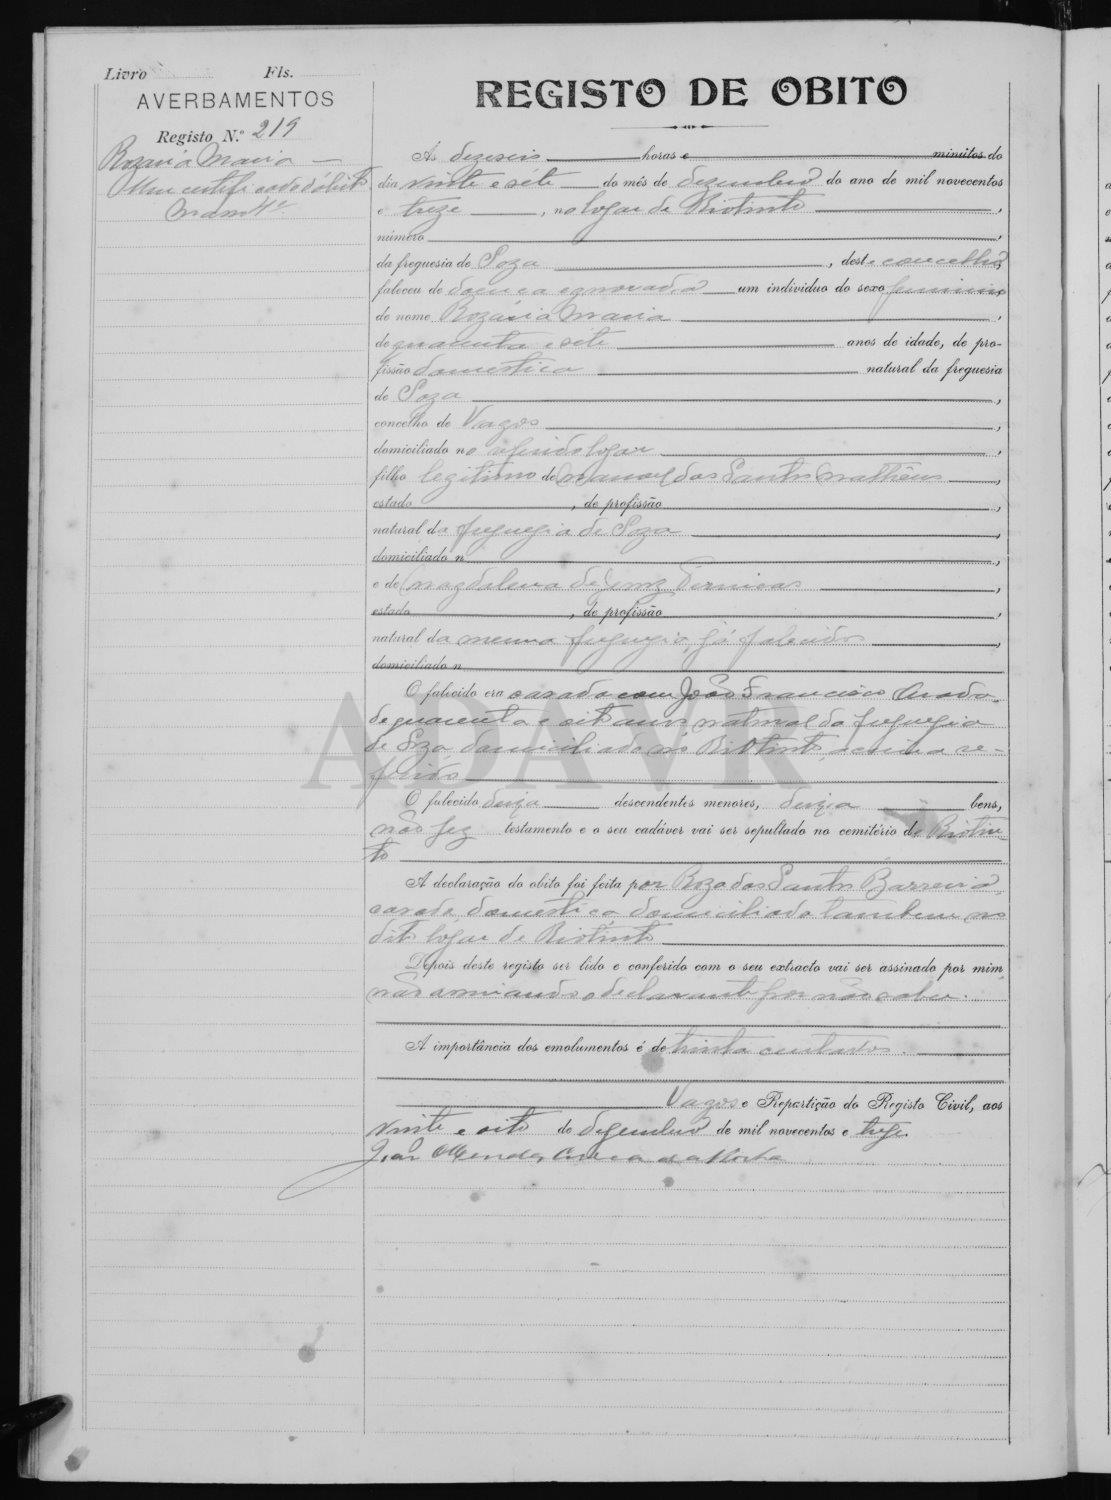 Livro Fls.
AVERBAMENTOS
Registo N.º 219
Rozaria Maria
REGISTO DE OBITO
Ás dezeseis horas e minutos do
dia vinte e sete do mês de dezembro do ano de mil novecentos
e treze, no logar de Riotinto,
número
da freguesia de Soza, deste concelho,
faleceu de doença egnorada um individuo do sexo feminino
de nome Rozária Maria,
de quarenta e sete anos de idade, de pro-
fissão domestica natural da freguesia
de Soza,
concelho de Vagos,
domiciliado no referido logar,
filho legitimo de Manoel dos Santos Mathêus,
estado, de profissão,
natural da freguezia de Soza,
domiciliado n,
e de Magdalena de Jezuz,
estado, de profissão,
natural da mesma freguezia, já falecidos,
domiciliado n
O falecido era casada com João Francisco
de quarenta e oito anos natural da freguezia
de Soza, domiciliado no Riotinto, acima re-
ferido
O falecido deixa descendentes menores, deixa bens,
não fez testamento e o seu cadáver vai ser sepultado no cemitério de Riotin-
to
A declaração do obito foi feita por Roza dos Santos
casada, domestica, domiciliada tambem no
dito logar de Riotinto
Depois deste registo ser lido e conferido com o seu extracto vai ser assinado por mim,
não assinando o declarante por não saber.
A importância dos emolumentos é de trinta centavos.
Vagos e Repartição do Registo Civil, aos
vinte e oito de dezembro de mil novecentos e treze.
João Mendes Correia da Rocha
ADAVR